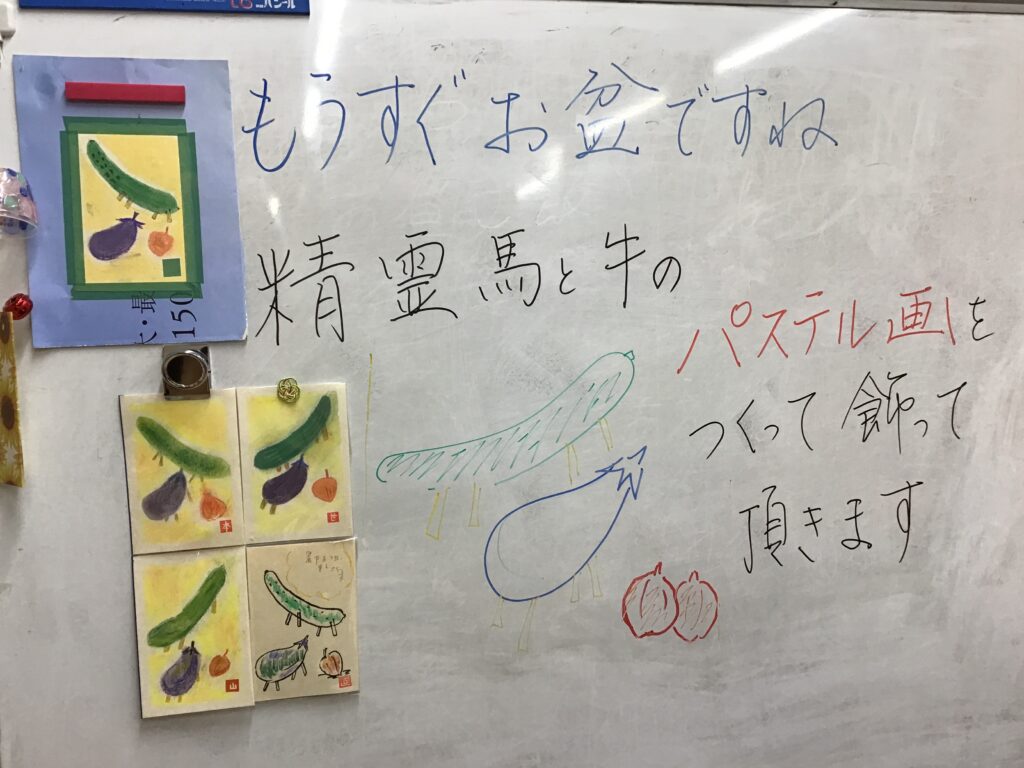 もうすぐお盆ですね
精霊馬と牛の
パステル画を
つくって飾って
頂きます
150